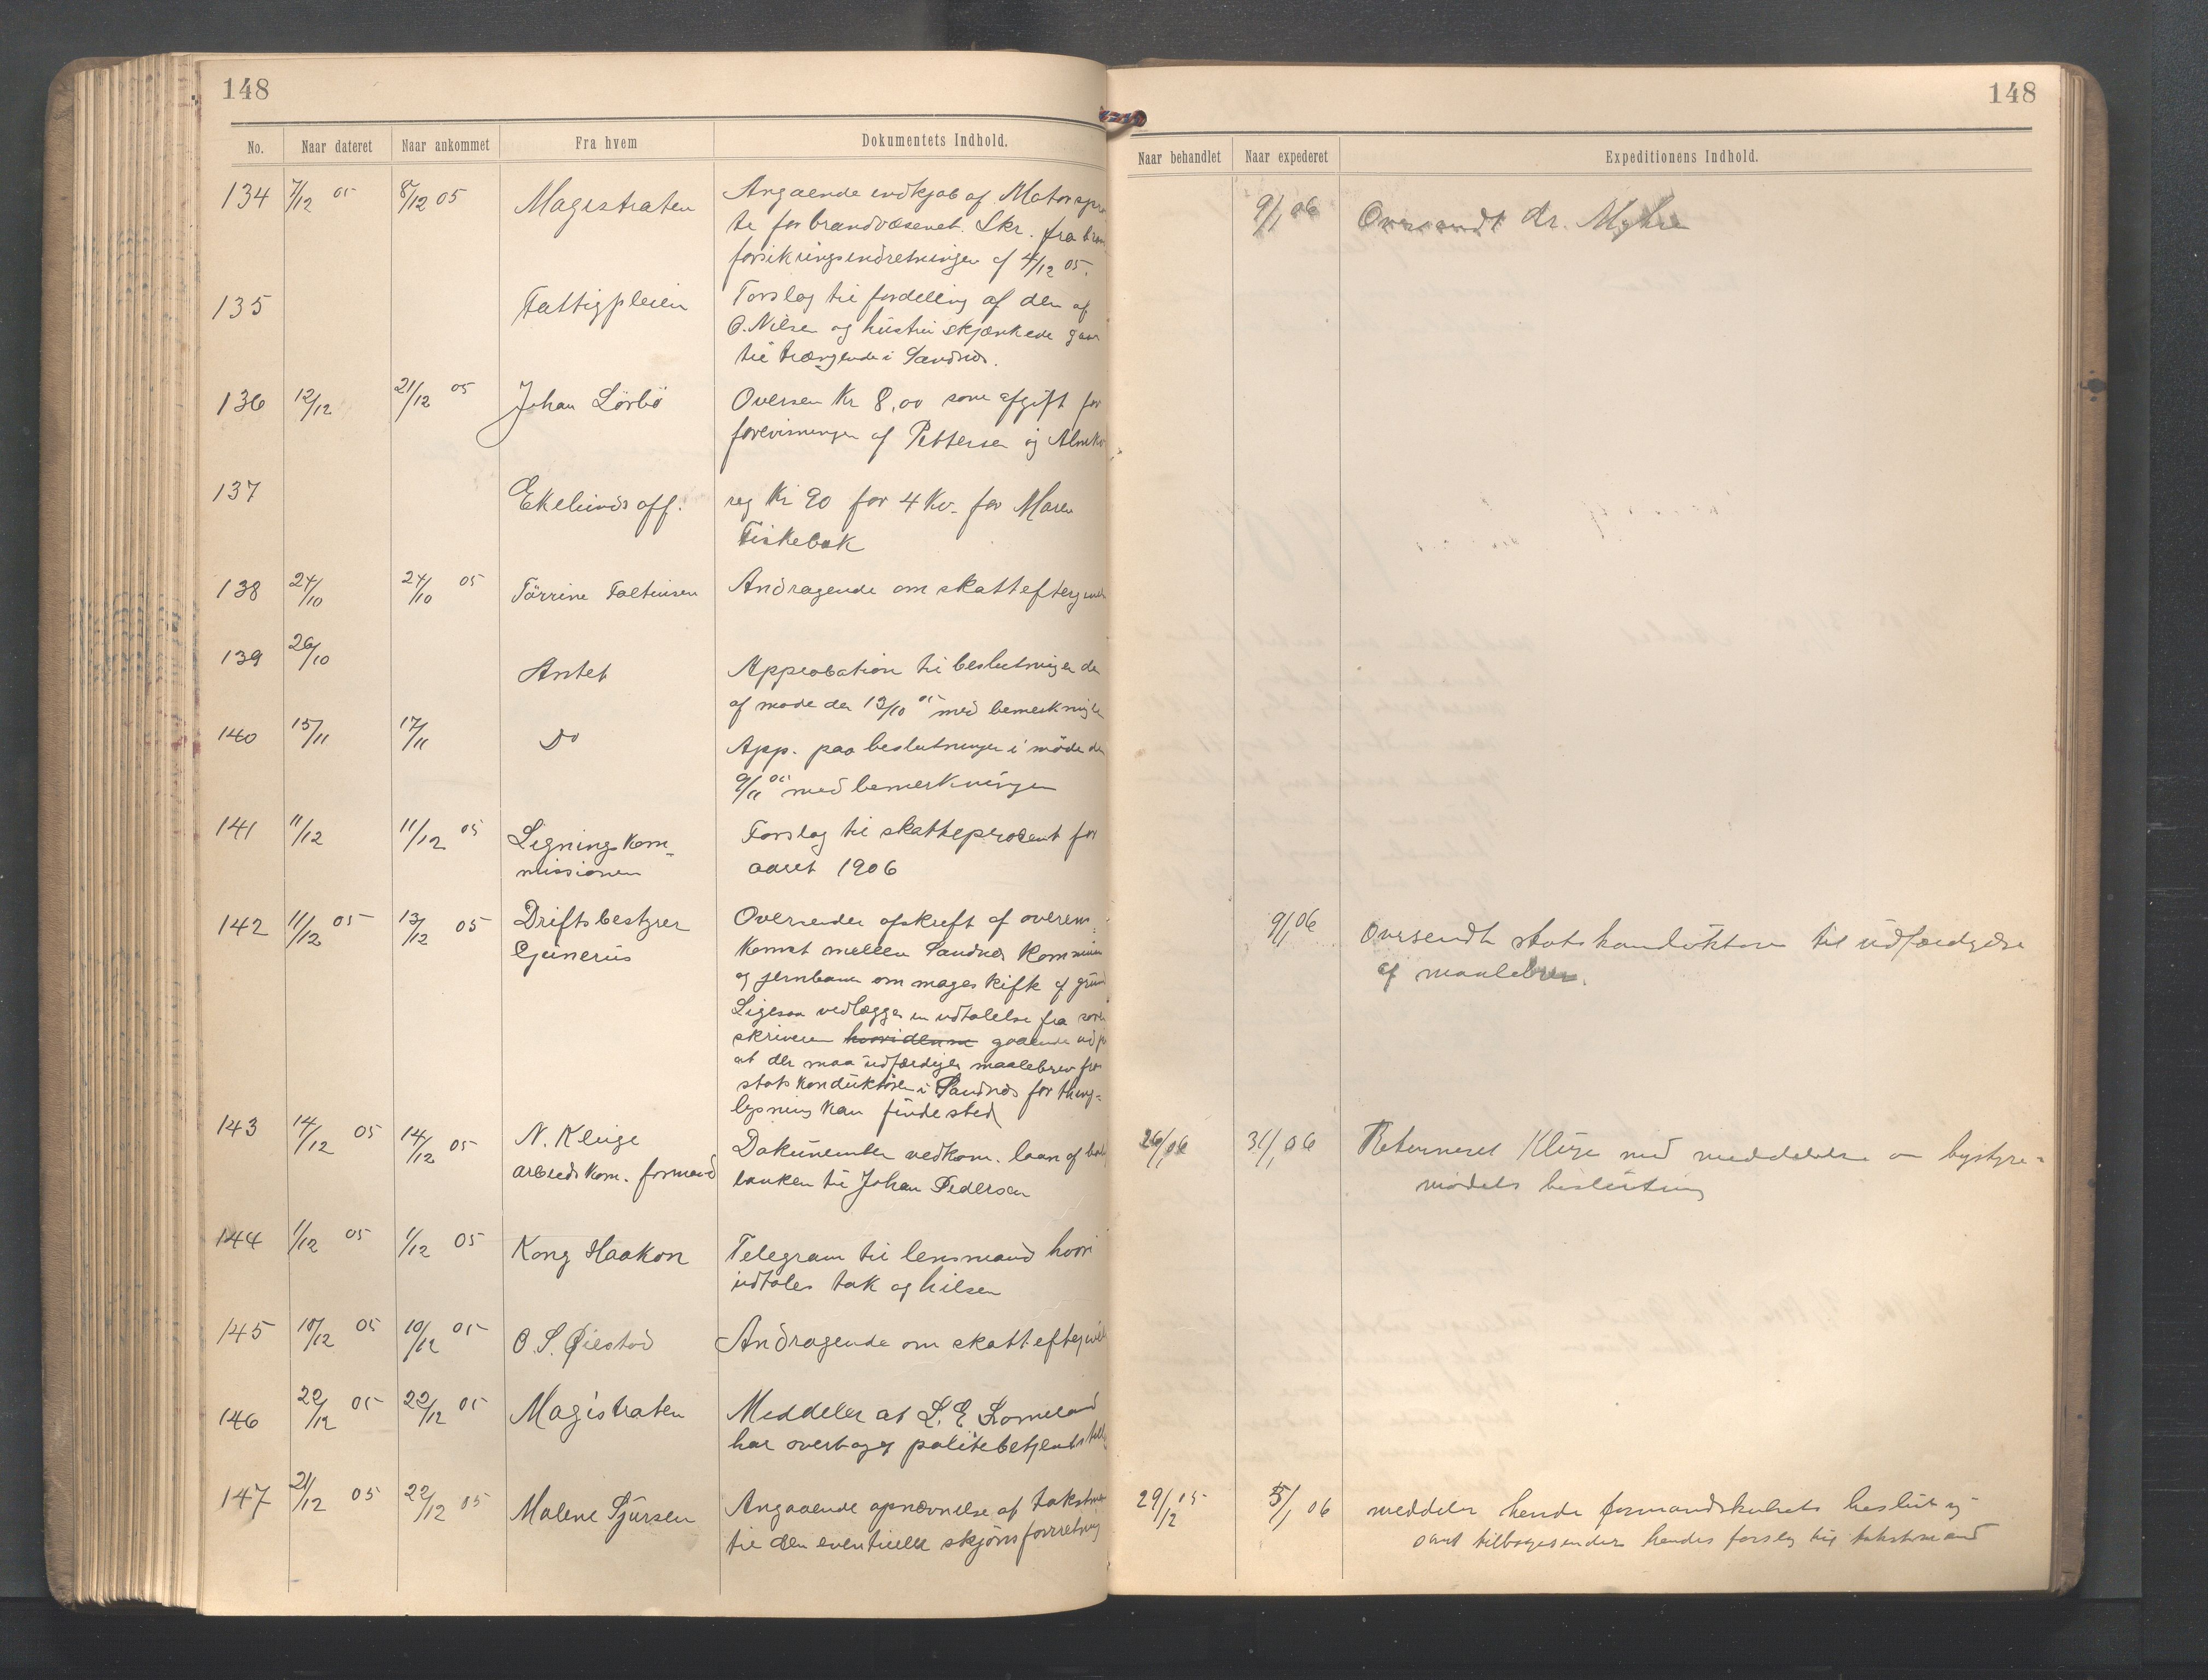 148
No. Naar dateret Naar ankommet Fra hvem Dokumentets Indhold.
134 7/12 05 8/12 05 Magistraten Angaaende indkjøb af Motorsprø
te for brandvæsenet. Skr. fra bran
forsikringsindretningen af 4/12 05.
135 Fattigpleien Forslag til fordeling af den af
O. Nilsen og hustru skjænkede gave
til trængende i Sandnes.
136 12/12 21/12 05 Johan Lörbö Oversen Kr 8,00 som afgift for
forevisningen af Pettersen og
137 Ekelunds off. reg Kr 90 for 4 Kv. for Maren
Fiskebæk
138 24/10 24/10 05 Törrine Taltinsen Andragende om skatteftergivels
139 26/10 Amtet Approbation til beslutninger de
af møde den 12/10 05 med bemerkninger
140 15/11 17/11 Do App. paa beslutninger i möde den
9/11 05 med bemerkninger
141 11/12 11/12 05 Lignings kom- Forslag til skatteprocent for
missionen aaret 1906
142 11/12 05 13/12 05 Driftsbestyrer Oversender afskrift af overens-
Gjunerius komst mellem Sandnes Kommun
og jernbanen om mageskifte af grund
Ligesaa vedlægges en udtalelse fra soren
skriveren hvori denne gaaende ud p
at der maa udfærdiges maalebrev fra
stadskonduktören i Sandnes for thing-
lysning kan finde sted
143 14/12 05 14/12 05 N. Kluge Dokumenter vedkom. laan af
arbeidskom. formand banken til Johan Pedersen
144 1/12 05 1/12 05 Kong Haakon Telegram til lensmand hvori
udtales tak og hilsen
145 10/12 05 10/12 05 O. S. Øiestad Andragende om skatteftergivels
146 22/12 05 22/12 05 Magistraten Meddeler at L. E.
har overtaget politibetjents
147 21/12 05 22/12 05 Malene Sjursen Angaaende opnævnelse af takstmæn
til den eventuelle skjønsforretning
148
Naar behandlet Naar expederet Expeditionens Indhold.
9/1 06 Oversendt dr. Myhre
9/1 06 Oversendt stadskonduktören til udfærdigelse
af maalebrev.
26/1 06 31/1 06 Returneret Kluge med meddelelse om bystyre-
mödets beslutning
29/12 05 5/1 06 meddeler hende formandskabets beslutng
samt tilbagesender hendes forslag til takstmænd